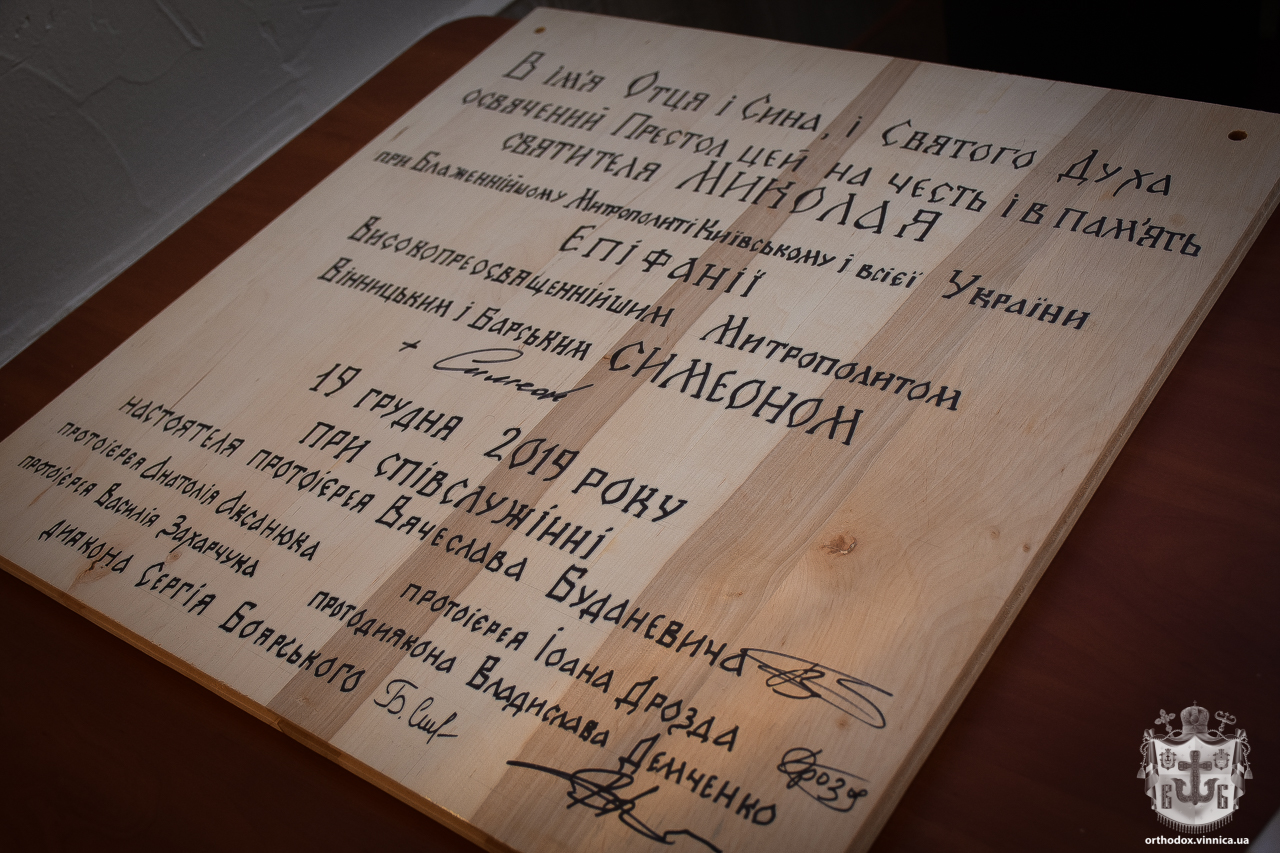 В ім'я Отця і Сина, і Святого Духа
освячений Престол цей на честь і в пам'ять
святителя МИКОЛАЯ
при Блаженнійшому Митрополиті Київському і всієї України
Епіфанії
Високопреосвященнійшим Митрополитом
Вінницьким і Барським СИМЕОНОМ
+ Симеон
19 грудня 2019 року
при співслужінні
настоятеля протоієрея Вячеслава Буданевича
протоієрея Анатолія Аксанюка протоієрея Іоана Дрозда
Дрозд
протоієрея Василія Захарчука протодиякона Владислава Демченко
диякона Сергія Боярського
В Б
orthodox.vinnica.ua